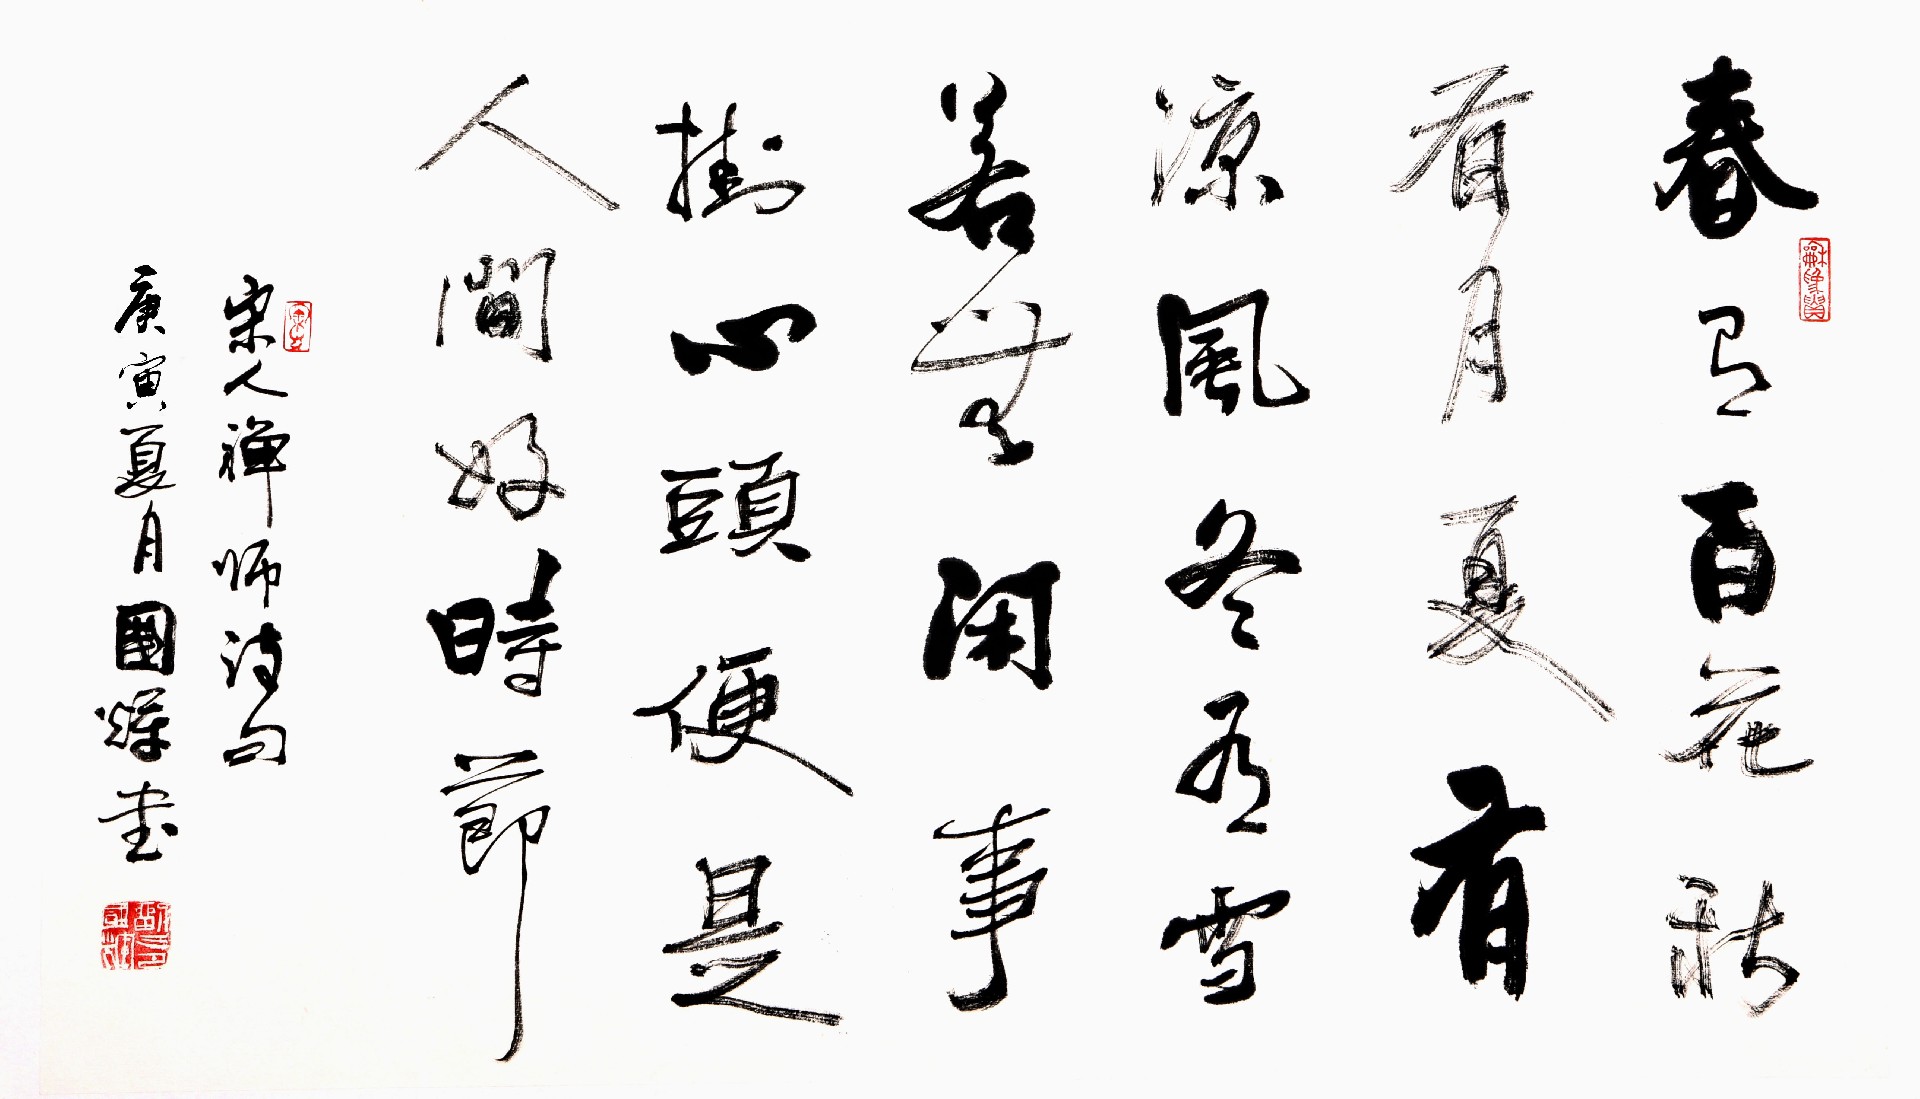 春有百花秋
有月夏有
凉風冬有雪
若無闲事
掛心頭便是
人間好時節
宋人禅师诗句
庚寅夏月國輝书